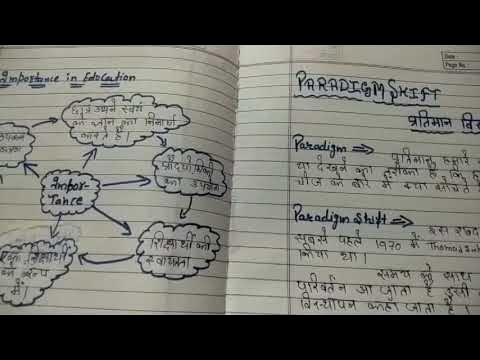 Importance in Education
छात्र अपने स्वयं
का ज्ञान का निर्माण
करते हैं।
प्रौद्योगिकी
का उपयोग
Impor-
tance
शिक्षार्थी की
स्वायत्तता
शिक्षार्थी
में
Date :
Page No. :
PARADIGM SHIFT
प्रतिमान
Paradigm ⇒ प्रतिमान हमारे
या देखने का तरीका है कि
चीज के बारे में क्या सोचते
Paradigm Shift ⇒ इस शब्द
सबसे पहले 1970 में Thomas
किया था।
समय के साथ
परिवर्तन आ जाता है इसी
विस्थापन कहा जाता है।